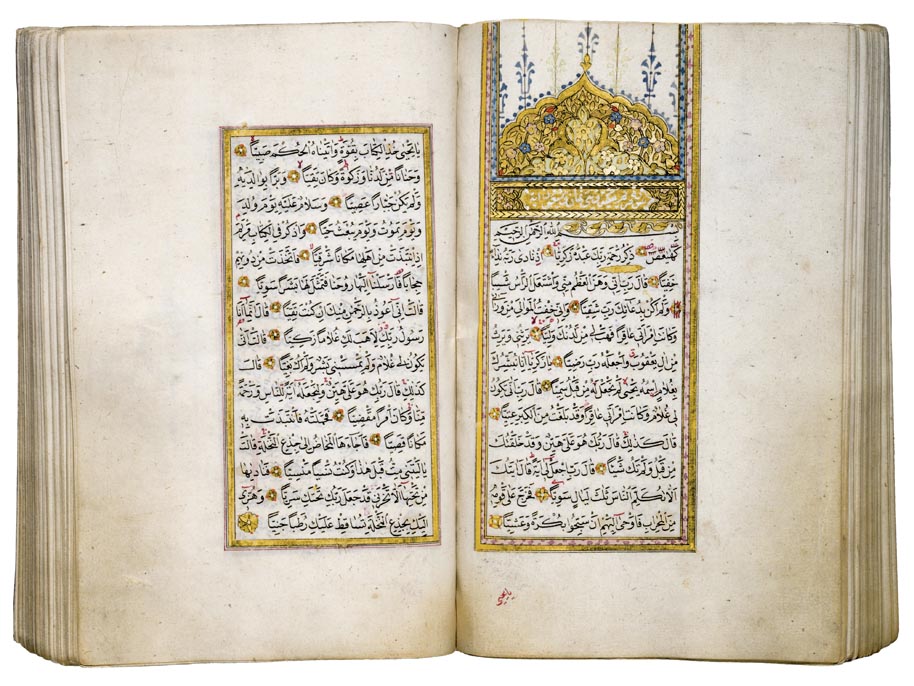 بِسْمِ اللهِ الرَّحْمٰنِ الرَّحِيمِ
كٓهٰيٰعٓصٓ ذِكْرُ رَحْمَتِ رَبِّكَ عَبْدَهُ زَكَرِيَّا اِذْ نَادٰى رَبَّهُ نِدَاءً
خَفِيًّا قَالَ رَبِّ اِنِّي وَهَنَ الْعَظْمُ مِنِّي وَاشْتَعَلَ الرَّأْسُ شَيْبًا
وَلَمْ اَكُنْ بِدُعَائِكَ رَبِّ شَقِيًّا وَاِنِّي خِفْتُ الْمَوَالِيَ مِنْ وَرَائِي
وَكَانَتِ امْرَاَتِي عَاقِرًا فَهَبْ لِي مِنْ لَدُنْكَ وَلِيًّا يَرِثُنِي وَيَرِثُ
مِنْ اٰلِ يَعْقُوبَ وَاجْعَلْهُ رَبِّ رَضِيًّا يَا زَكَرِيَّا اِنَّا نُبَشِّرُكَ
بِغُلَامٍ اسْمُهُ يَحْيٰى لَمْ نَجْعَلْ لَهُ مِنْ قَبْلُ سَمِيًّا قَالَ رَبِّ اَنّٰى يَكُونُ
لِي غُلَامٌ وَكَانَتِ امْرَاَتِي عَاقِرًا وَقَدْ بَلَغْتُ مِنَ الْكِبَرِ عِتِيًّا
قَالَ كَذٰلِكَ قَالَ رَبُّكَ هُوَ عَلَيَّ هَيِّنٌ وَقَدْ خَلَقْتُكَ
مِنْ قَبْلُ وَلَمْ تَكُ شَيْئًا قَالَ رَبِّ اجْعَلْ لِي اٰيَةً قَالَ اٰيَتُكَ
اَلَّا تُكَلِّمَ النَّاسَ ثَلٰثَ لَيَالٍ سَوِيًّا فَخَرَجَ عَلٰى قَوْمِهِ
مِنَ الْمِحْرَابِ فَاَوْحٰى اِلَيْهِمْ اَنْ سَبِّحُوا بُكْرَةً وَعَشِيًّا
يا يحيى
يَا يَحْيٰى خُذِ الْكِتَابَ بِقُوَّةٍ وَاٰتَيْنَاهُ الْحُكْمَ صَبِيًّا
وَحَنَانًا مِنْ لَدُنَّا وَزَكٰوةً وَكَانَ تَقِيًّا وَبَرًّا بِوَالِدَيْهِ
وَلَمْ يَكُنْ جَبَّارًا عَصِيًّا وَسَلَامٌ عَلَيْهِ يَوْمَ وُلِدَ
وَيَوْمَ يَمُوتُ وَيَوْمَ يُبْعَثُ حَيًّا وَاذْكُرْ فِي الْكِتَابِ مَرْيَمَ
اِذِ انْتَبَذَتْ مِنْ اَهْلِهَا مَكَانًا شَرْقِيًّا فَاتَّخَذَتْ مِنْ دُونِهِمْ
حِجَابًا فَاَرْسَلْنَا اِلَيْهَا رُوحَنَا فَتَمَثَّلَ لَهَا بَشَرًا سَوِيًّا
قَالَتْ اِنِّي اَعُوذُ بِالرَّحْمٰنِ مِنْكَ اِنْ كُنْتَ تَقِيًّا قَالَ اِنَّمَا اَنَا
رَسُولُ رَبِّكِ لِاَهَبَ لَكِ غُلَامًا زَكِيًّا قَالَتْ اَنّٰى
يَكُونُ لِي غُلَامٌ وَلَمْ يَمْسَسْنِي بَشَرٌ وَلَمْ اَكُ بَغِيًّا قَالَ
كَذٰلِكِ قَالَ رَبُّكِ هُوَ عَلَيَّ هَيِّنٌ وَلِنَجْعَلَهُ اٰيَةً لِلنَّاسِ وَرَحْمَةً
مِنَّا وَكَانَ اَمْرًا مَقْضِيًّا فَحَمَلَتْهُ فَانْتَبَذَتْ بِهِ
مَكَانًا قَصِيًّا فَاَجَاءَهَا الْمَخَاضُ اِلٰى جِذْعِ النَّخْلَةِ قَالَتْ
يَا لَيْتَنِي مِتُّ قَبْلَ هٰذَا وَكُنْتُ نَسْيًا مَنْسِيًّا فَنَادٰيهَا
مِنْ تَحْتِهَا اَلَّا تَحْزَنِي قَدْ جَعَلَ رَبُّكِ تَحْتَكِ سَرِيًّا وَهُزِّي
اِلَيْكِ بِجِذْعِ النَّخْلَةِ تُسَاقِطْ عَلَيْكِ رُطَبًا جَنِيًّا